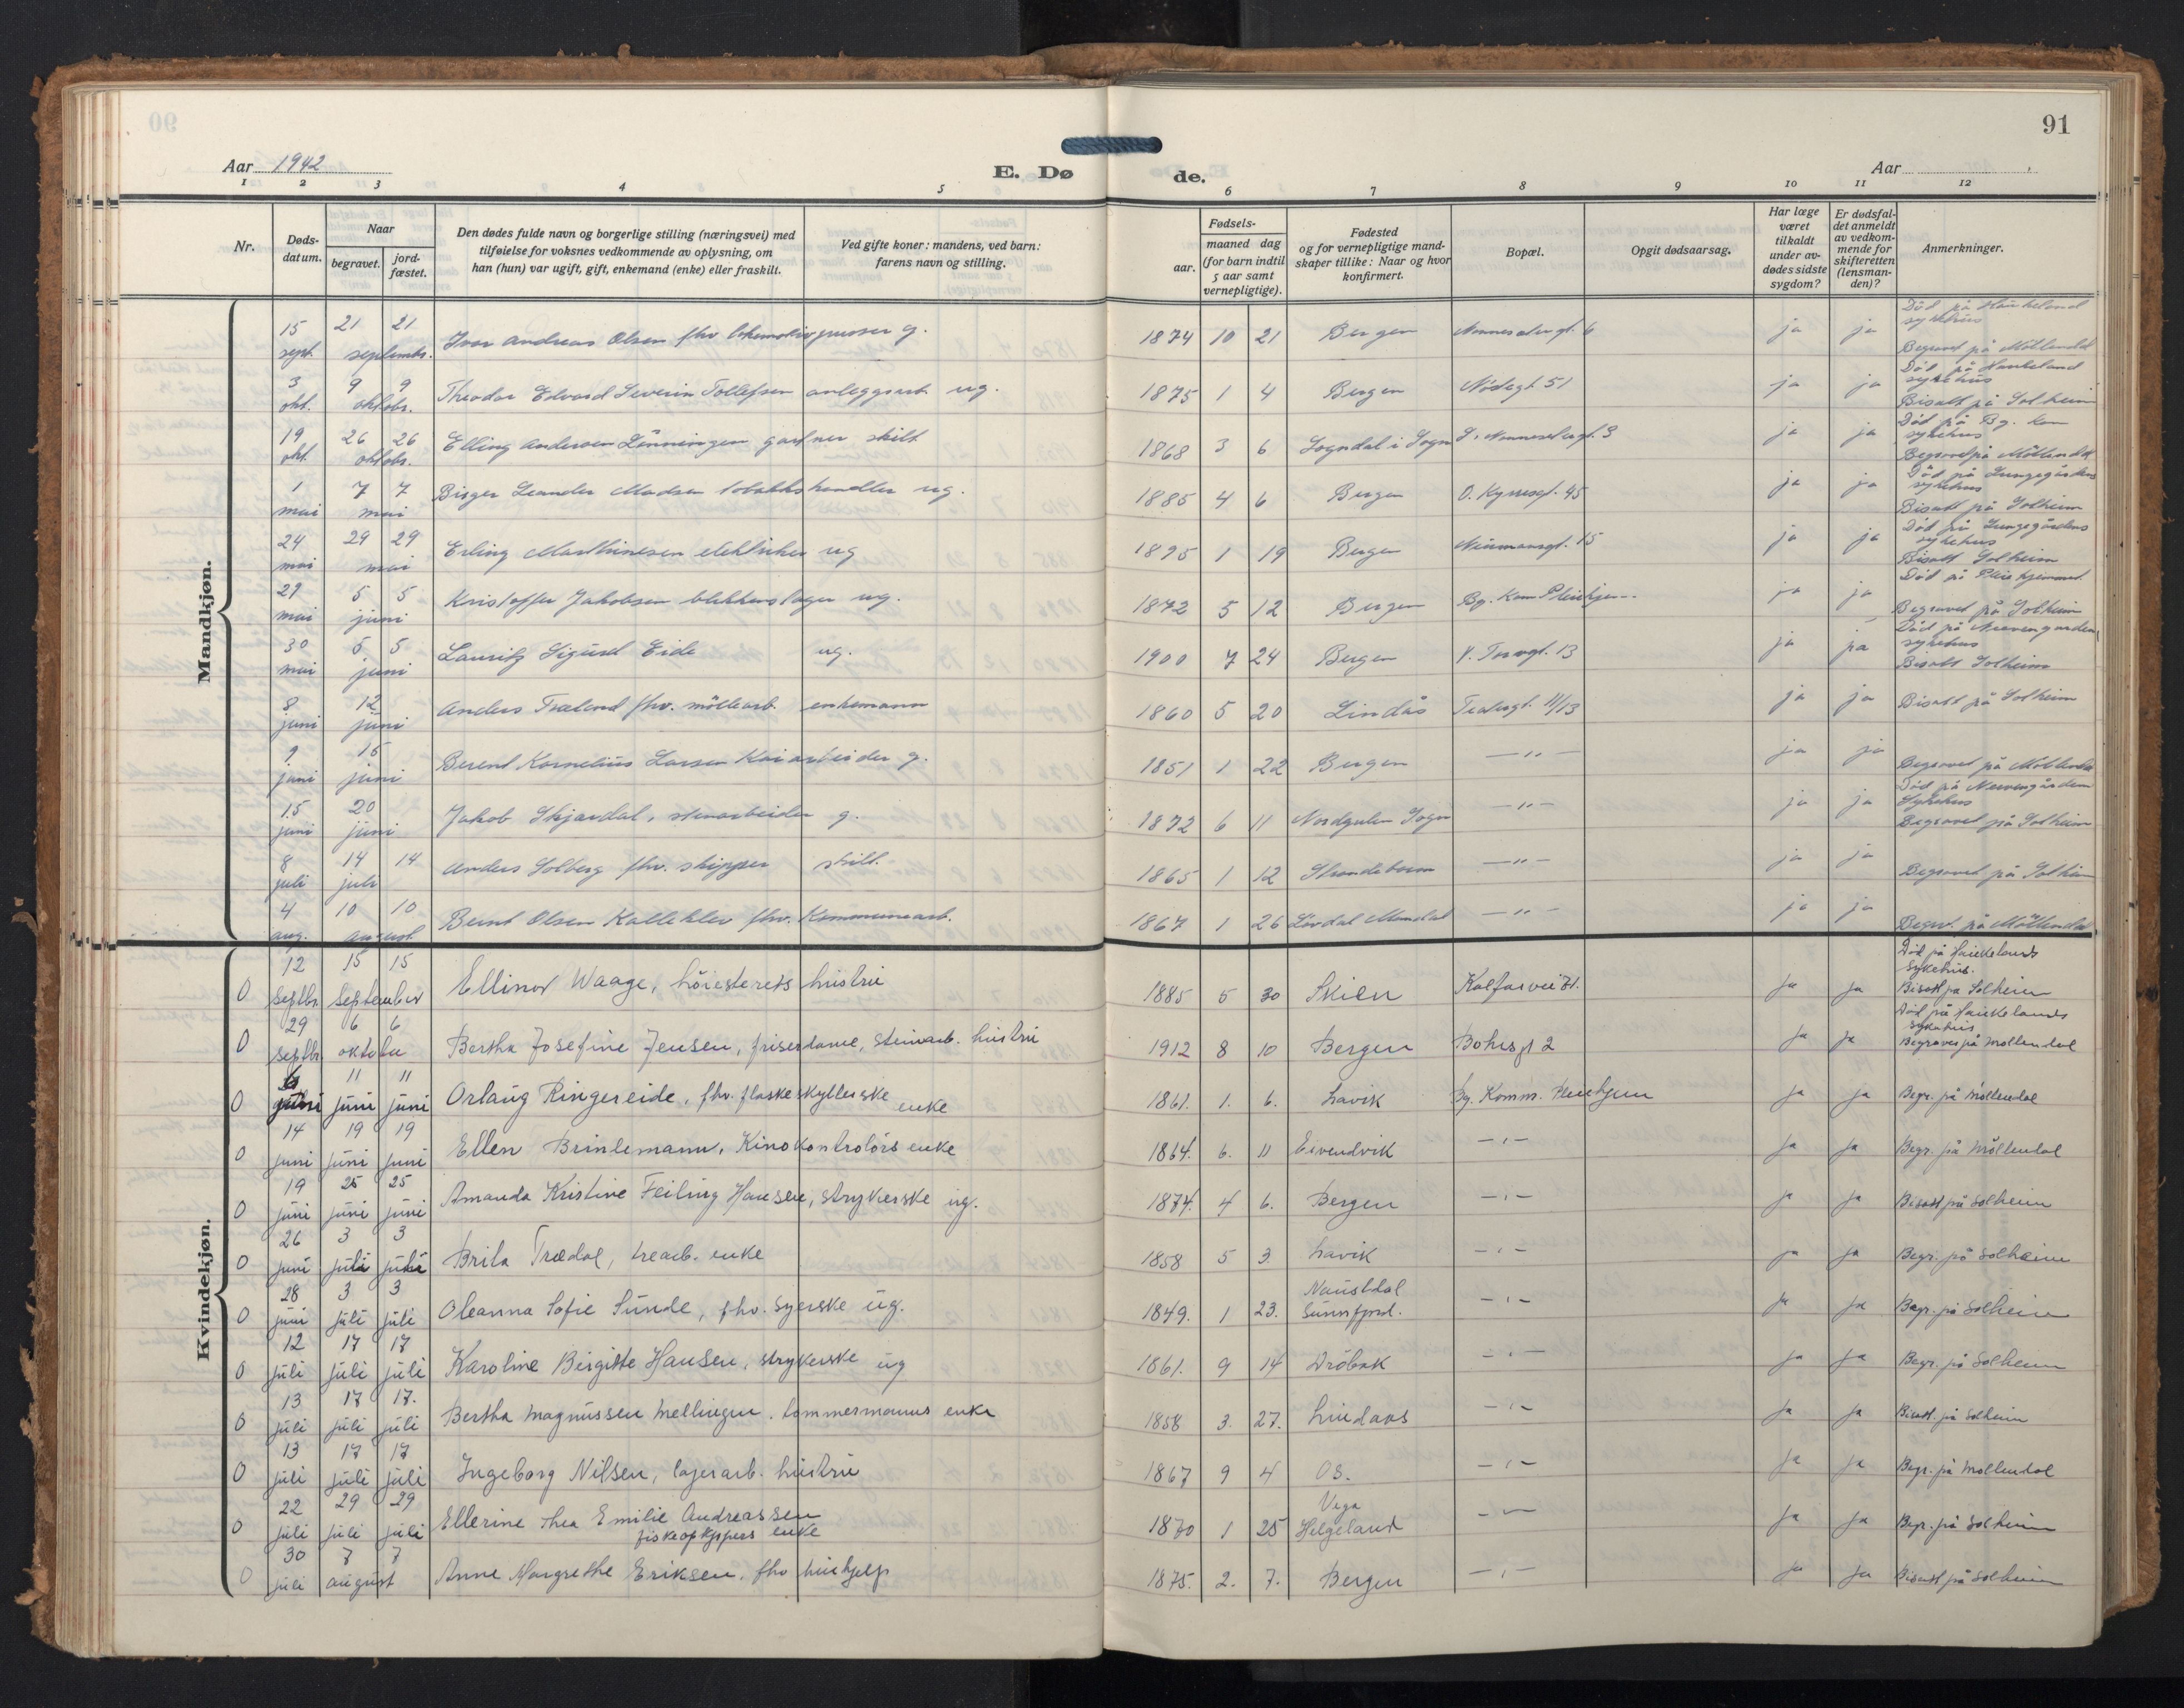 90
91
Aar 1942
E. Dø de.
Aar
1 2 3 4 5 6 7 8 9 10 11 12
Nr.
Døds-datum.
Naar
begravet.
jord-fæstet.
Den dødes fulde navn og borgerlige stilling (næringsvei) med tilføielse for voksnes vedkommende av oplysning, om han (hun) var ugift, gift, enkemand (enke) eller fraskilt.
Ved gifte koner: mandens, ved barn: farens navn og stilling.
aar.
Fødsels-
maaned dag (for barn indtil 5 aar samt vernepligtige).
Fødested og for vernepligtige mandskaper tillike: Naar og hvor konfirmert.
Bopæl.
Opgit dødsaarsag.
Har læge været tilkaldt under avdødes sidste sygdom?
Er dødsfaldet anmeldt av vedkommende for skifteretten (lensmanden)?
Anmerkninger.
Mandkjøn.
15 sept. 21 21 septembr. Ivar Andreas Olsen fhv lokomotivpusser g. 1874 10 21 Bergen 6 ja ja Död på Haukeland sykehus Begravet på Möllendal
3 okt. 9 9 oktobr. Theodor Edvard Severin Tollefsen anleggsarb. ug. 1875 1 4 Bergen 51 ja ja Död på Haukeland sykehus Bisatt på Solheim
19 okt. 26 26 oktobr. Elling Andersen Lönningen gartner skilt 1868 3 6 Sogndal i Sogn 3 ja ja Död på Bg. kom sykehus Begravet på Möllendal
1 mai 7 7 mai Birger Leander Madsen tobakkshandler ug. 1885 4 6 Bergen O. Kyrresgt. 45 ja ja Död på Lungegårdens sykehus Bisatt på Solheim
24 mai 29 29 mai Erling Marthinesen elektriker ug 1895 1 19 Bergen Neümannsgt. 15 ja ja Död på Lungegårdens sykehus Bisatt Solheim
29 mai 5 5 juni Kristoffer Jakobsen blikkenslager ug. 1872 5 12 Bergen Bg. Kom Pleiehjem ja ja Död på Pleiehjemmet Begravet på Solheim
30 mai 5 5 juni Lauritz Sigurd Eide ug. 1900 7 24 Bergen V. Torvgt. 13 ja ja Död på Nevengården sykehus Bisatt Solheim
8 juni 12 juni Anders Træland fhv. möllearb. enkemann 1860 5 20 Lindås Teatergt. 11/13 ja ja Bisatt på Solheim
9 juni 15 juni Berent Kornelius Larsen Kaiarbeider g. 1851 1 22 Bergen —"— ja ja Begravet på Möllendal
15 juni 20 juni Jakob Skjerdal, stenarbeider g. 1872 6 11 Nordgulen Sogn —"— ja ja Död på Nevengården Sykehus Begravet på Solheim
8 juli 14 14 juli Anders Solberg fhv. skipper skilt. 1865 1 12 Strandebarm —"— ja ja Begravet på Solheim
4 aug. 10 10 august Bernt Olsen Kalleklev fhv. Kommunearb. 1867 1 26 —"— ja ja Begrv. på Möllendal
Kvindekjøn.
0 12 septbr 15 15 september Ellinor Waage, höiesterets hustru 1885 5 30 Skien Kalfarvei 71. ja ja Död på Haukelands Sykehus. Bisatt på Solheim
0 29 septbr 6 6 oktober Bertha Josefine Jensen, friserdame, steinarb. hustru 1912 8 10 Bergen Bohrsgt 2 ja ja Död på Haukelands Sykehus Begraves på Möllendal
0 6 juni 11 juni 11 juni Orlaug Ringereide, fhv. flaskeskyllerske enke 1861. 1. 6. Lavik Bg. Komm. Pleiehjem ja ja Begr. på Möllendal
0 14 juni 19 juni 19 juni Ellen Brinlemann, Kinokontrolörs enke 1864. 6. 11 Eivendvik —"— ja ja Begr. på Möllendal
0 19 juni 25 juni 25 juni Amanda Kristine Feiling Hansen, strykerske ug. 1874. 4 6. Bergen —"— ja ja Bisatt på Solheim
0 26 juni 3 juli 3 juli Brita Trædal, trearb. enke 1858 5 3. Lavik —"— ja ja Begr. på Solheim
0 28 juni 3 juli 3 juli Oleanna Sofie Sunde, fhv. syerske ug. 1849. 1 23. Naustdal Sunnfjord. —"— ja ja Begr. på Solheim
0 12 juli 17 juli 17 juli Karoline Birgitte Hansen, strykerske ug 1861. 9 14 Dröbak —"— ja ja Begr. på Solheim
0 13 juli 17 juli 17. juli Bertha Magnussen Mellingen. tømmermanns enke 1858 3. 27. Lindaas —"— ja ja Bisatt. på Solheim
0 13 juli 17 juli 17 juli Ingeborg Nilsen, lagerarb. hustru 1867 9 4 Os. —"— ja ja Begr. på Möllendal
0 22 juli 29 juli 29 juli Ellerine Thea Emilie Andreassen fiskeopkjøpers enke 1870 1 25 Vega Helgeland —"— ja ja Begr. på Solheim
0 30 juli 7 7 august Anne Margrethe Eriksen, fhv hushjelp 1875. 2. 7. Bergen —"— ja ja Bisatt på Solheim